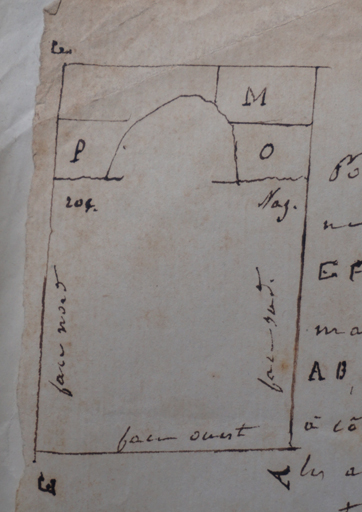 M
P
O
Nag.
face nord
face sud.
face ouest
E
A
E F
m a
A B
à cô
les a